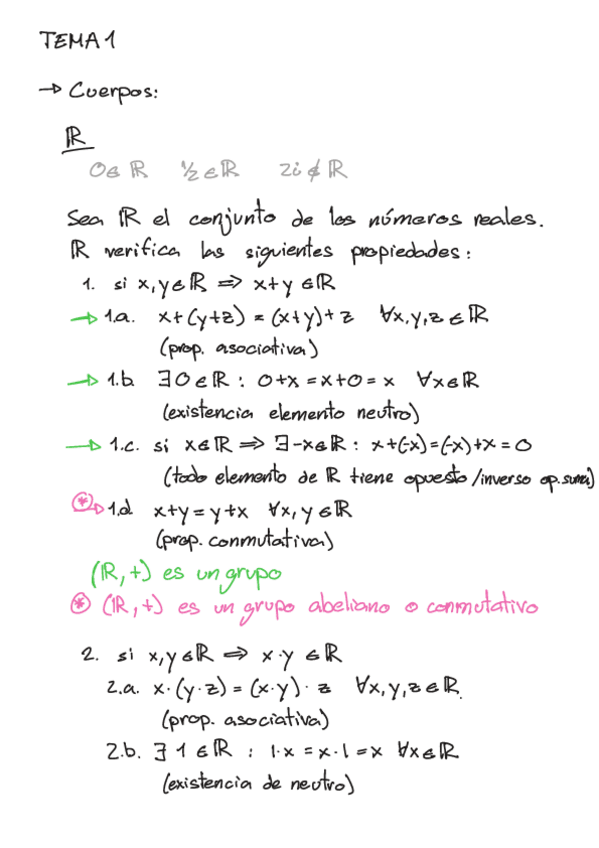 TEMA 1
→ Cuerpos:
ℝ
0∈ℝ ½∈ℝ 2i∉ℝ
Sea ℝ el conjunto de los números reales.
ℝ verifica las siguientes propiedades:
1. si x,y∈ℝ ⇒ x+y∈ℝ
→ 1.a. x+(y+z) = (x+y)+z ∀x,y,z∈ℝ
(prop. asociativa)
→ 1.b. ∃0∈ℝ : 0+x=x+0=x ∀x∈ℝ
(existencia elemento neutro)
→ 1.c. si x∈ℝ ⇒ ∃-x∈ℝ : x+(-x)=(-x)+x=0
(todo elemento de ℝ tiene opuesto/inverso op.suma)
⊛→ 1.d. x+y=y+x ∀x,y∈ℝ
(prop. conmutativa)
(ℝ,+) es un grupo
⊛ (ℝ,+) es un grupo abeliano o conmutativo
2. si x,y∈ℝ ⇒ x·y∈ℝ
2.a. x·(y·z) = (x·y)·z ∀x,y,z∈ℝ.
(prop. asociativa)
2.b. ∃1∈ℝ : 1·x=x·1=x ∀x∈ℝ
(existencia de neutro)